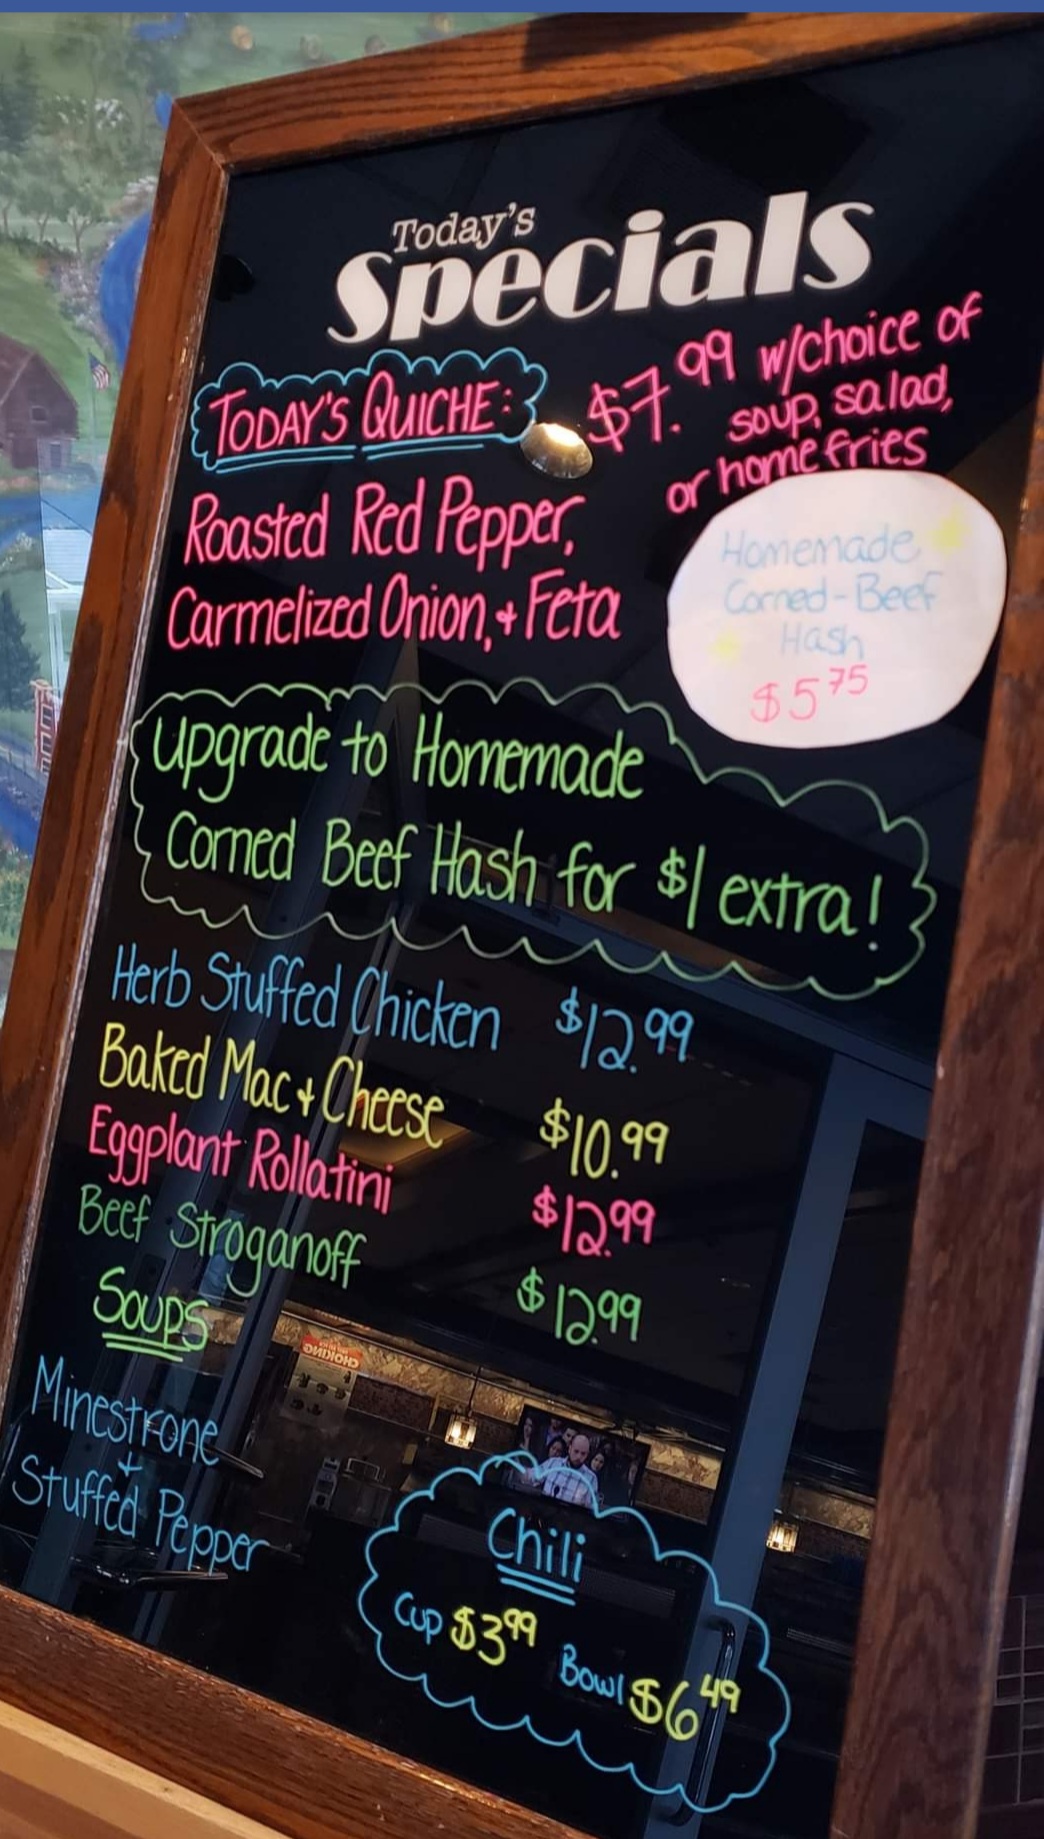 Today's
Specials
TODAY'S QUICHE:
$7.99 w/choice of
soup, salad,
or home fries
Roasted Red Pepper,
Carmelized Onion, + Feta
Homemade
Corned-Beef
Hash
$5 75
Upgrade to Homemade
Corned Beef Hash for $1 extra!
Herb Stuffed Chicken $12.99
Baked Mac + Cheese $10.99
Eggplant Rollatini $12.99
Beef Stroganoff $12.99
Soups
Minestrone
+
Stuffed Pepper
Chili
Cup $3 99 Bowl $6 49
CHOKING